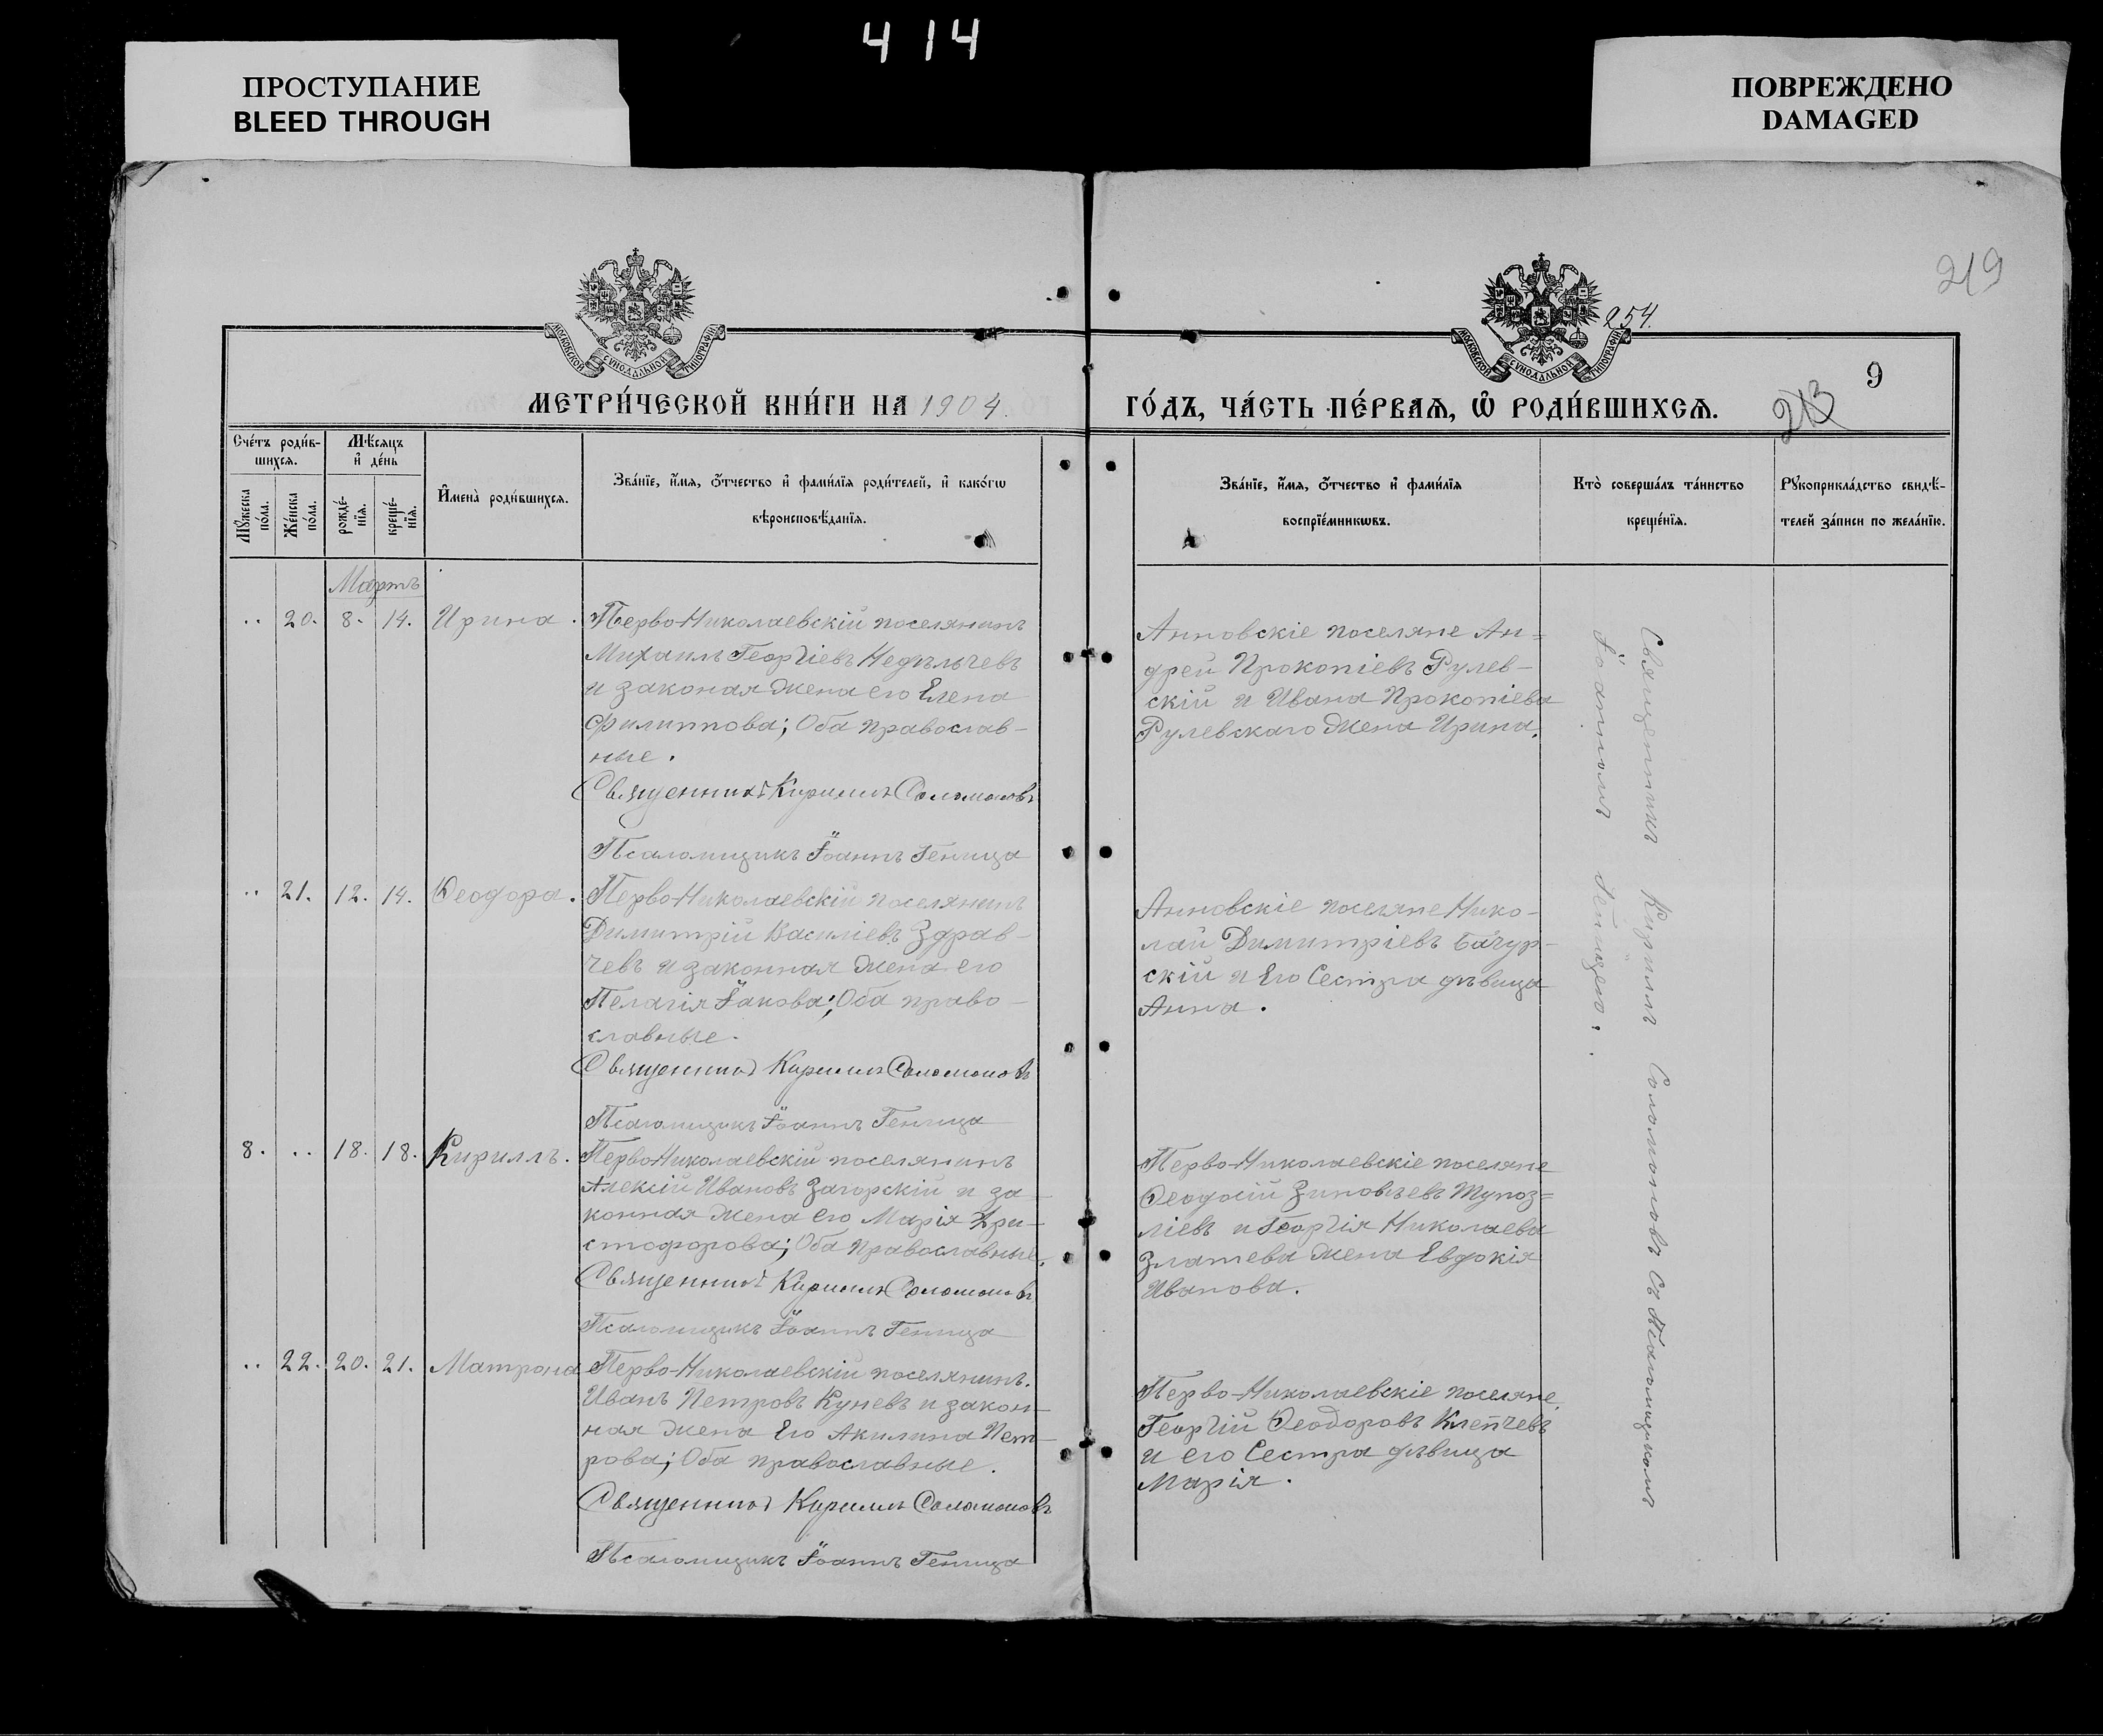 414
ПРОСТУПАНИЕ
BLEED THROUGH
ПОВРЕЖДЕНО
DAMAGED
219
254.
МОСКОВСКОЙ СѴНОДАЛЬНОЙ ТИПОГРАФІИ
МОСКОВСКОЙ СѴНОДАЛЬНОЙ ТИПОГРАФІИ
9
213
МЕТРИ́ЧЕСКОЙ КНИ́ГИ НА 1904.
ГО́ДЪ, ЧА́СТЬ ПЕ́РВАѦ, Ѽ РОДИ́ВШИХСѦ.
Сче́тъ роди́в-
шихсѧ.
Мꙋ́жеска
по́ла.
Же́нска
по́ла.
Мѣ́сѧцъ
и҆ де́нь
рожде́-
нїѧ.
креще́-
нїѧ.
И҆мена̀ роди́вшихсѧ.
Зва́нїе, и҆́мѧ, ѻ҆́тчество и҆ фами́лїѧ роди́телей, и҆ како́гѡ
вѣроисповѣ́данїѧ.
Зва́нїе, и҆́мѧ, ѻ҆́тчество и҆ фами́лїѧ
воспрїе́мникѡвъ.
Кто̀ соверша́лъ та́инство
креще́нїѧ.
Рꙋкоприкла́дство свидѣ́-
телей за́писи по жела́нїю.
Мартъ
.. 20. 8. 14. Ирина.
Перво-Николаевскій поселянинъ
Михаилъ Георгіевъ Недѣльчевъ
и законая жена его Елена
Филиппова; Оба православ-
ные.
Священникъ Кирилл Соломоновъ
Псаломщикъ Іоаннъ Геница
Анновскіе поселяне Ан=
дрей Прокопіевъ Рулев-
скій и Ивана Прокопіева
Рулевскаго жена Ирина.
.. 21. 12. 14. Ѳеодора.
Перво-Николаевскій поселянинъ
Димитрій Василіевъ Здрав-
чевъ и законная жена его
Пелагія Іакова; Оба право-
славные.
Священникъ Кирилл Соломоновъ
Псаломщикъ Іоаннъ Геница
Анновскіе поселяне Нико-
лай Димитріевъ Бачур-
скій и Его Сестра дѣвица
Анна.
8. .. 18. 18. Кириллъ.
Перво-Николаевскій поселянинъ
Алексій Ивановъ Загорскій и за-
конная жена его Марія Хри-
стофорова; Оба православные.
Священникъ Кирилл Соломоновъ
Псаломщикъ Іоаннъ Геница
Перво-Николаевскіе поселяне
Ѳеодосій Зиновьевъ Тупоз=
ліевъ и Георгія Николаева
Златева жена Евдокія
Иванова.
.. 22. 20. 21. Матрона
Перво-Николаевскій поселянинъ.
Иванъ Петровъ Куневъ и закон-
ная жена Его Акилина Пет-
рова; Оба православные.
Священникъ Кирилл Соломоновъ
Псаломщикъ Іоаннъ Геница
Перво-Николаевскіе поселяне
Георгій Ѳеодоровъ Клепчевъ
и его Сестра дѣвица
Марія.
Священникъ Кириллъ Соломоновъ съ Псаломщикомъ
Іоанномъ Геницею.